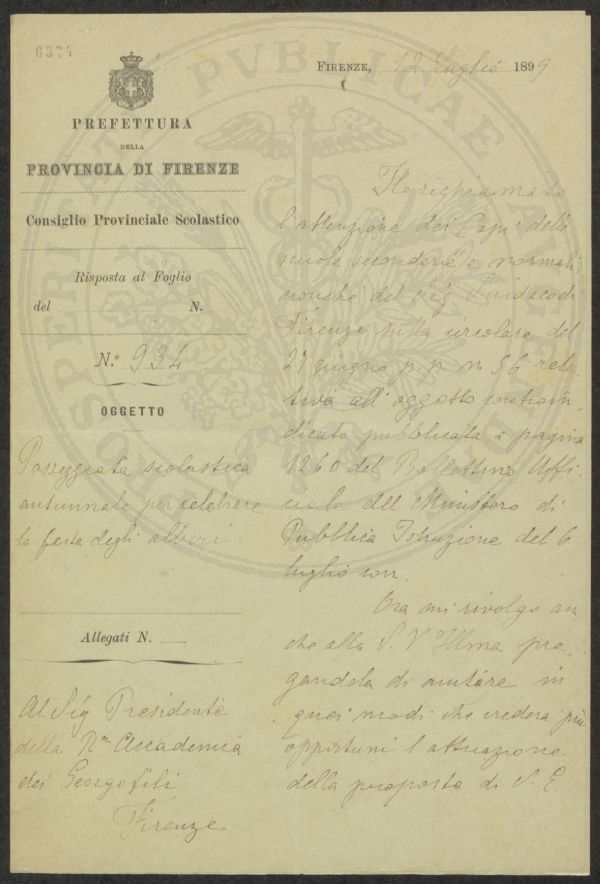 6374
PREFETTURA
DELLA
PROVINCIA DI FIRENZE
Consiglio Provinciale Scolastico
Risposta al Foglio
del N.
N.° 934
OGGETTO
Passeggiata scolastica
autunnale per celebrare
la festa degli alberi
Allegati N.
Al Sig Presidente
della Rᵃ Accademia
dei Georgofili
Firenze
FIRENZE, 12 Luglio 1899
Ho richiamato
l'attenzione dei Capi delle
scuole secondarie e normali,
nonché del sig Sindaco di
Firenze sulla circolare del
27 giugno p.p. n 56 rela-
tiva all'oggetto controin-
dicato pubblicata a pagina
1260 del Bollettino Uffi-
ciale del Ministero di
Pubblica Istruzione del 6
luglio corr.
Ora mi rivolgo an-
che alla S. V Illma pre-
gandola di aiutare in
quei modi che crederà più
opportuni l'attuazione
della proposta di S. E.
PROSPERITATI PVBLICAE AVGENDAE